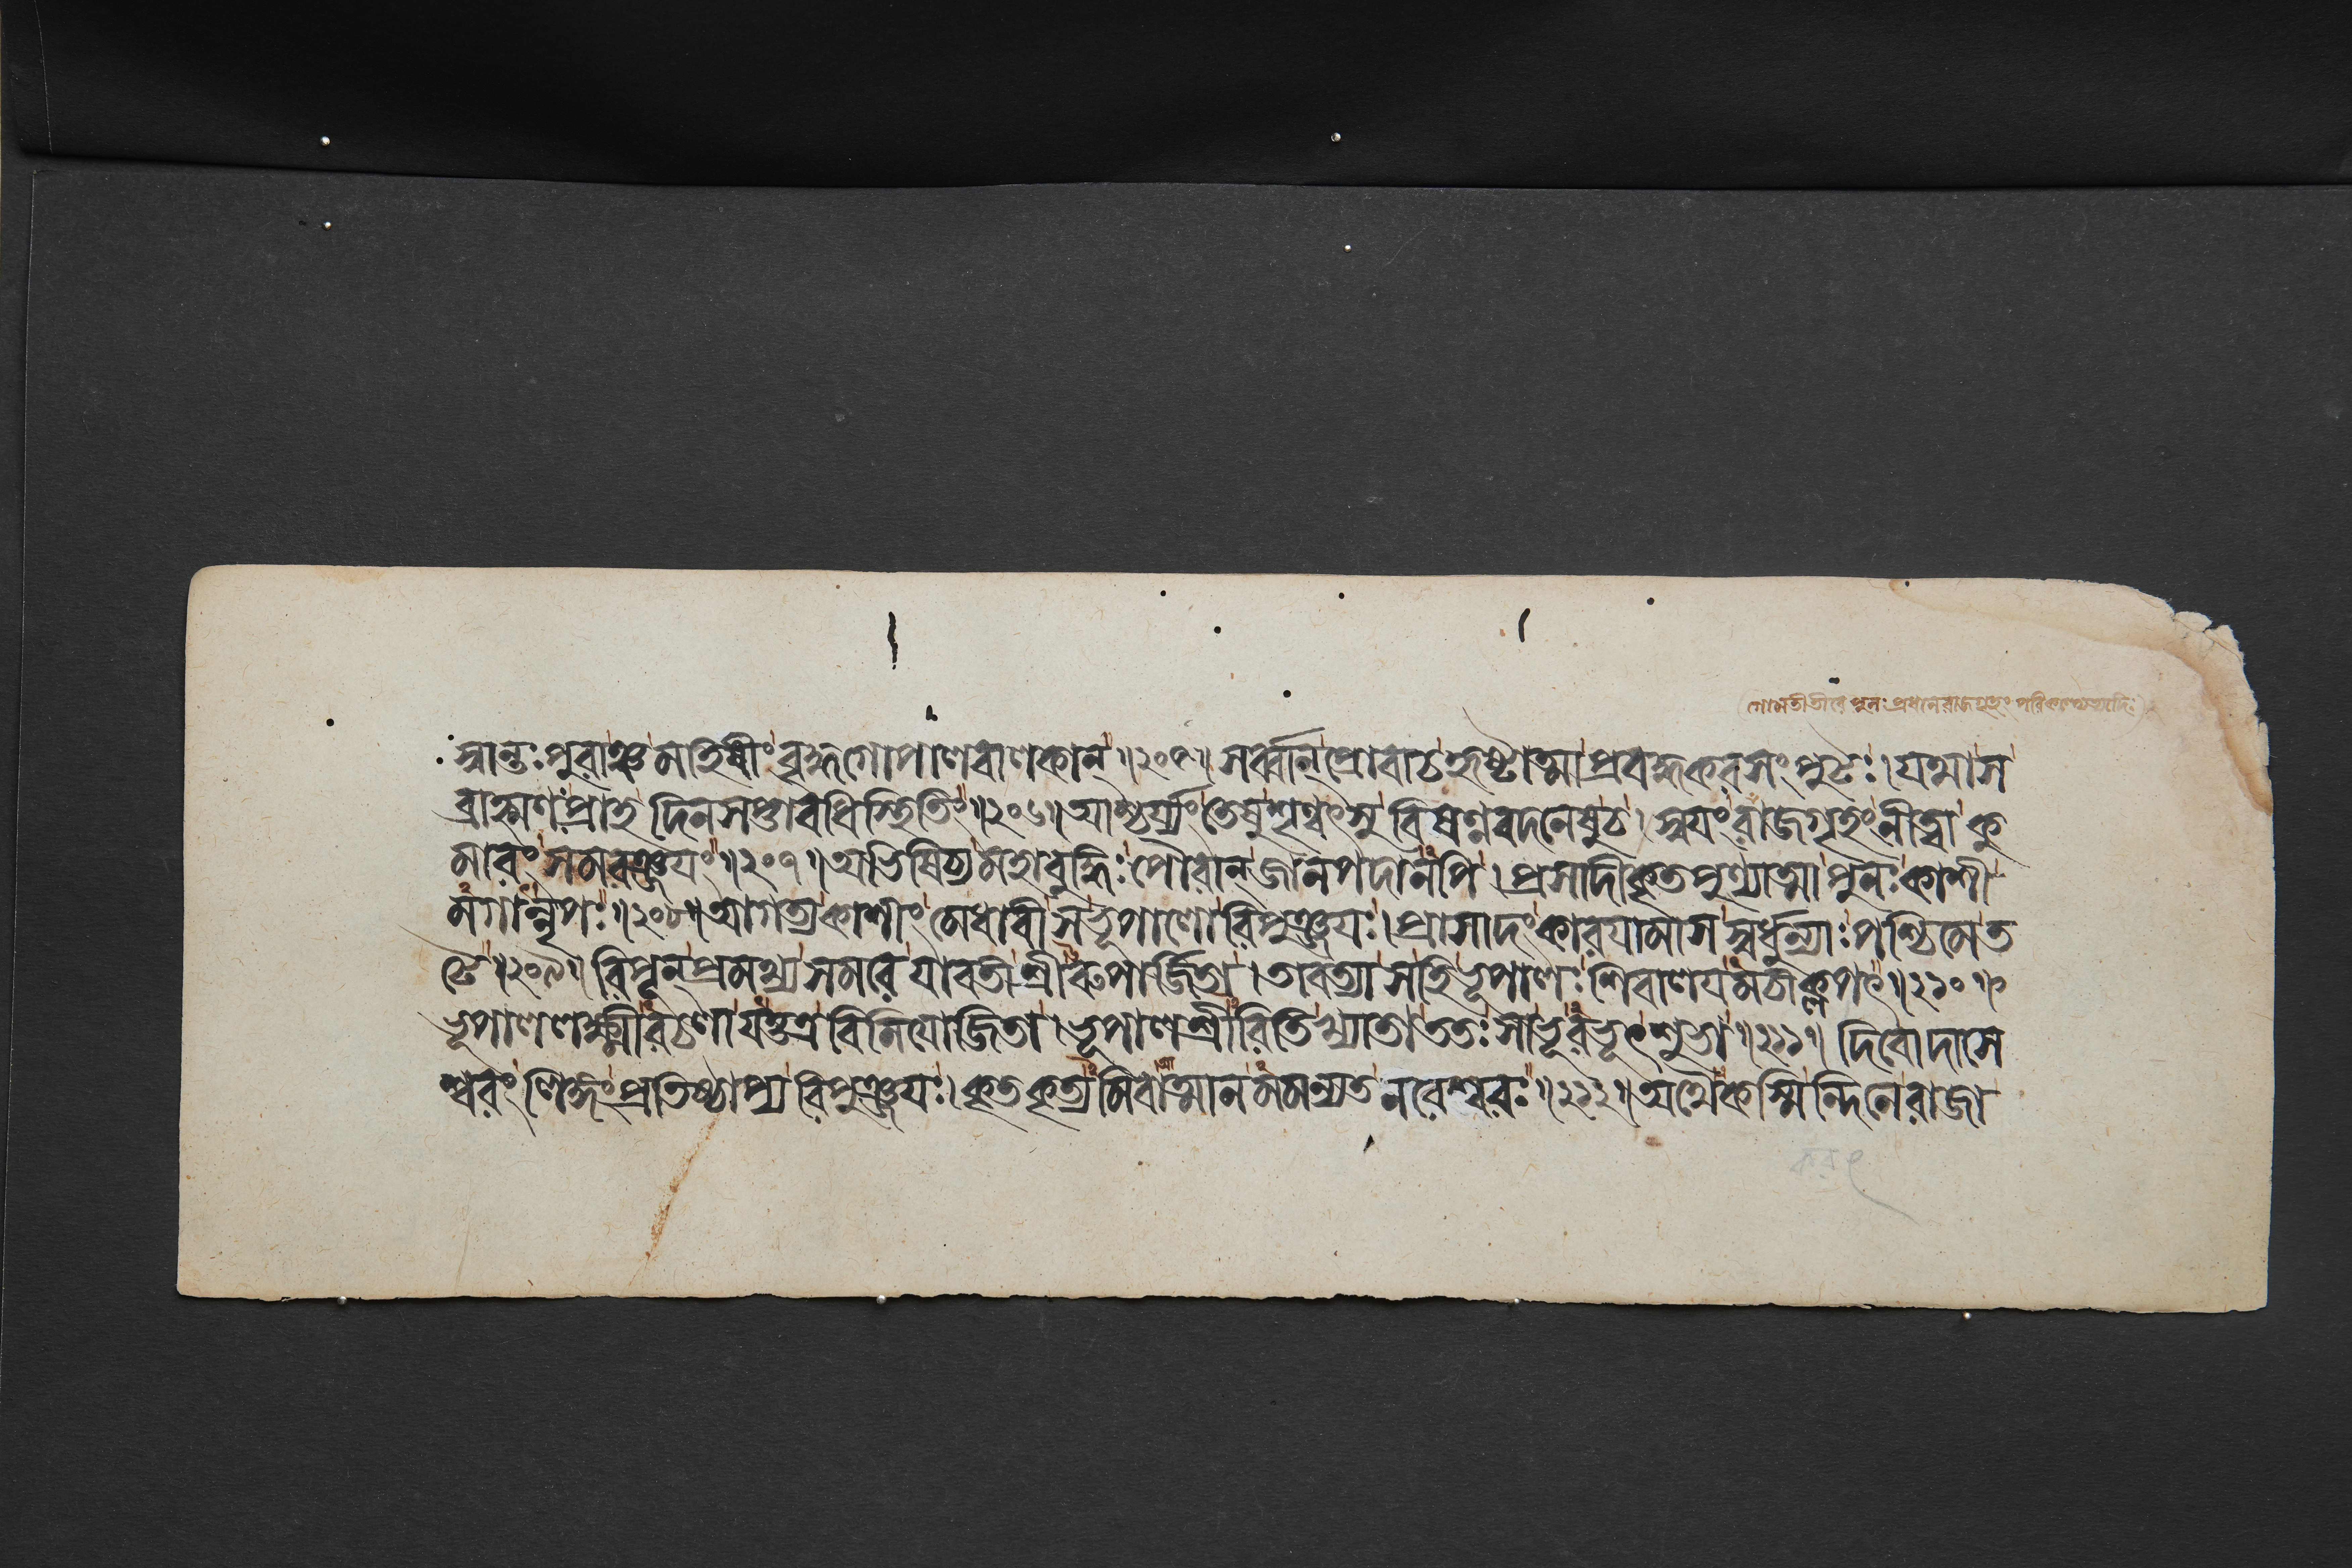 (গোমতীতীরে পুনঃ প্রধানে রাজগৃহং পরিকল্প্যেত্যাদিঃ)
স্বান্তঃপুরাঞ্চ মহিষীং বৃদ্ধগোপালবালকান্॥২০৫॥ সর্ব্বান্প্রোবাচহৃষ্টাত্মাপ্রবদ্ধকরসংপুটঃ। যন্মাস
ব্রাহ্মণঃপ্রাহ দিনসপ্তাবধিস্থিতিং॥২০৬॥আশ্চর্য্যংতেষুশৃণ্বৎসু বিষণ্নবদনেষুচ। স্বয়ংরাজগৃহংনীত্বা কু
মারং সমরঞ্জয়ং॥২০৭॥অভিষিচ্য মহাবুদ্ধিঃ পৌরান্ জানপদানপি। প্রসাদীকৃত পুণ্যাত্মা পুনঃ কাশী
মগান্নৃপঃ॥২০৮॥আগত্যকাশীং মেধাবীসভূপালোরিপুঞ্জয়ঃ। প্রাসাদংকারয়ামাস স্বর্ধুন্যাঃ পশ্চিমেত
টে॥২০৯॥ রিপূন্প্রমথ্য সমরে যাবতীশ্রীরুপার্জ্জিতা। তাবত্যাসহিভূপালঃ শিবালয়মচীক্লৃপৎ॥২১০॥
ভূপাললক্ষ্মীরচলা যত্তত্র বিনিয়োজিতা। ভূপালশ্রীরিতিখ্যাতাততঃ সাভূরভূৎশুভা॥২১১॥ দিবোদাসে
শ্বরং লিঙ্গংপ্রতিষ্ঠাপ্য রিপুঞ্জয়ঃ। কৃতকৃত্যমিবাত্মানমমন্যত নরেশ্বরঃ॥২১২॥অথৈকস্মিন্দিনেরাজা